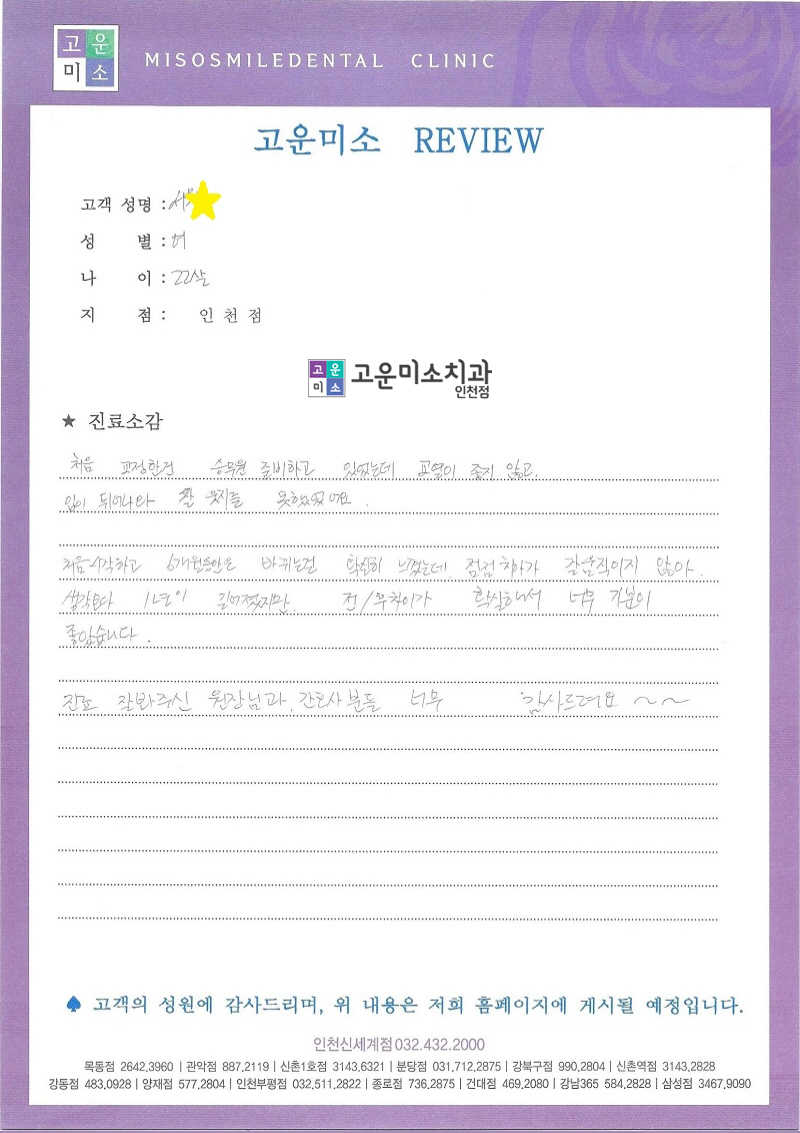 고운
미소
MISOSMILEDENTAL CLINIC
고운미소 REVIEW
고객 성명 :
성 별 : 여
나 이 : 22살
지 점 : 인 천 점
고운
미소
고운미소치과
인천점
★ 진료소감
처음 교정한건 승무원 준비하고 있었는데 교열이 좋지 않고.
입이 튀어나와 잘 웃지를 못했었어요.
처음 시작하고 6개월동안은 바뀌는걸 확실히 느꼈는데, 점점 치아가 갈 움직이지 않아.
생각보다 1년이 길어졌지만, 전/후차이가 확실해서 너무 기분이
좋았습니다.
진료 잘봐주신 원장님과, 간호사분들 너무 감사드려요 ~~
♠ 고객의 성원에 감사드리며, 위 내용은 저희 홈페이지에 게시될 예정입니다.
인천신세계점 032.432.2000
목동점 2642,3960 | 관악점 887,2119 | 신촌1호점 3143,6321 | 분당점 031,712,2875 | 강북구점 990,2804 | 신촌역점 3143,2828
강동점 483,0928 | 양재점 577,2804 | 인천부평점 032,511,2822 | 종로점 736,2875 | 건대점 469,2080 | 강남365 584,2828 | 삼성점 3467,9090